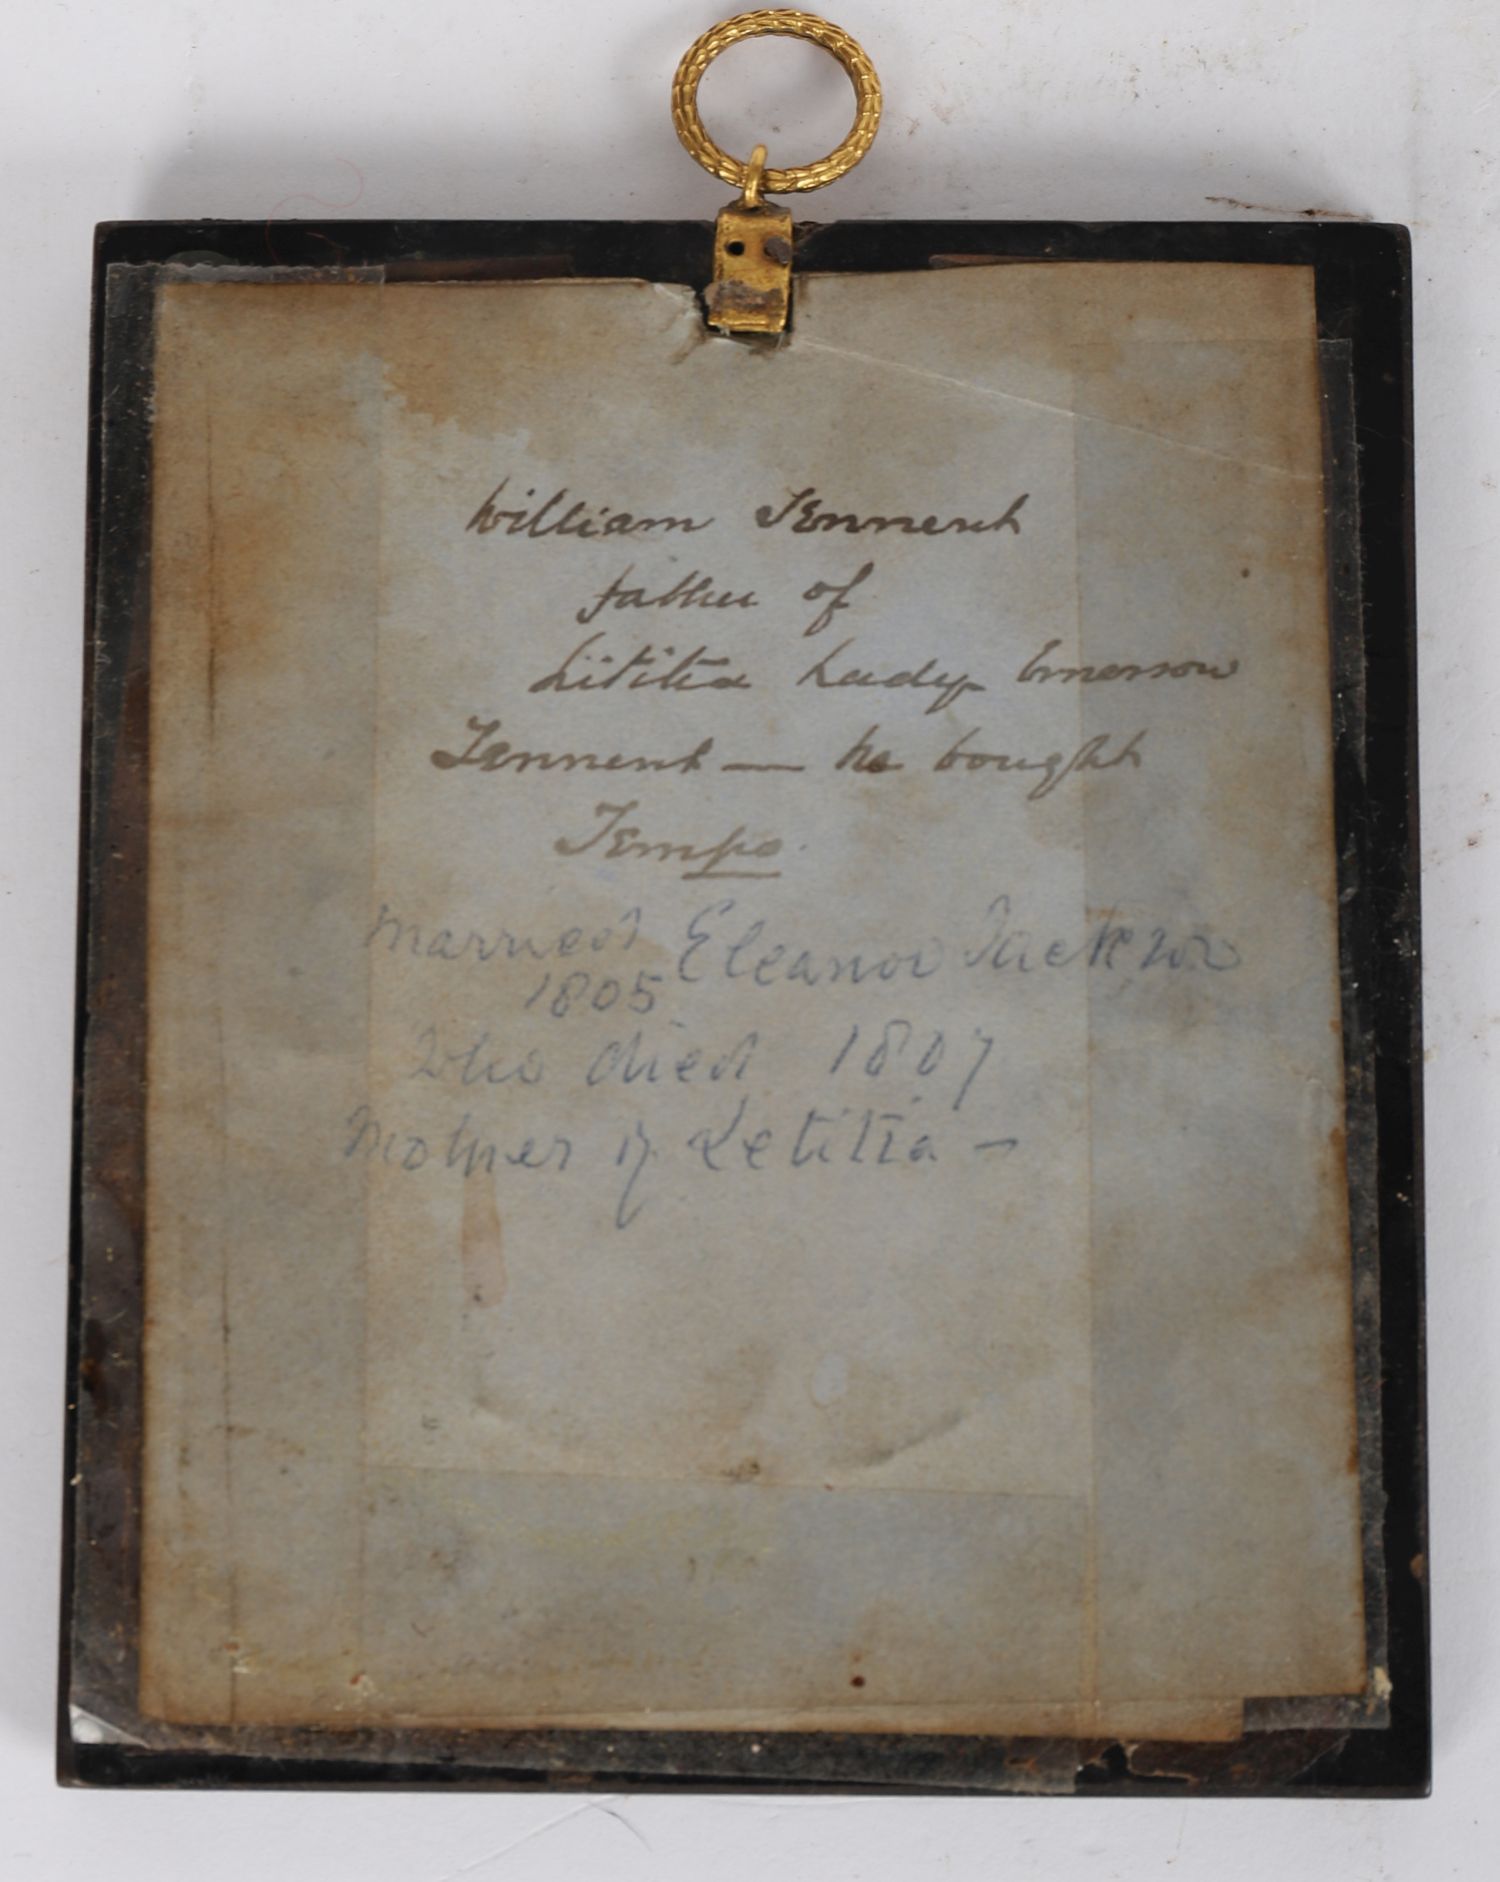 William Tennent
father of
Lititia Lady Emerson
Tennent — he bought
Tempo
Married Eleanor Jackson
1805
Who died 1807
Mother of Letitia —